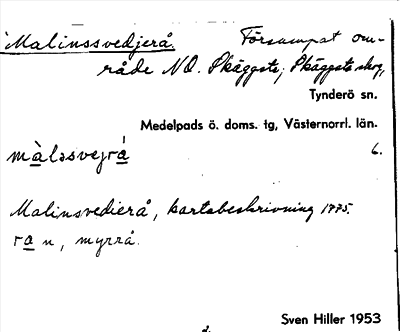 Malinssvedjerå. Försumpat om-
råde NO. Skäggsta, Skäggsta skog,
Tynderö sn.
Medelpads ö. doms. tg, Västernorrl. län.
màləsvejrá 6.
Malinsvedierå, kartabeskrivning 1775.
ra n, myrrå.
Sven Hiller 1953